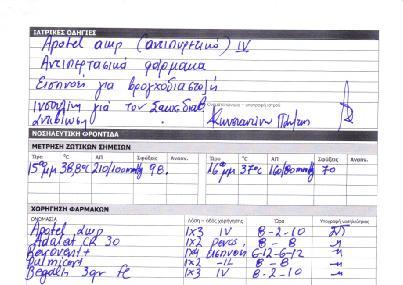 ΙΑΤΡΙΚΕΣ ΟΔΗΓΙΕΣ
Apotel αμπ (αντιπυρετικό) IV
Αντιπερτασικά φάρμακα
Εισπνοή για βρογχοδιαστολή
Ινσουλίνη για τον Σακχ. διαβ.
Αντιβίωση Κωνσταντίνου
ΝΟΣΗΛΕΥΤΙΚΗ ΦΡΟΝΤΙΔΑ
ΜΕΤΡΗΣΗ ΖΩΤΙΚΩΝ ΣΗΜΕΙΩΝ
Ώρα °C ΑΠ Σφύξεις Αναπν. Ώρα °C ΑΠ Σφύξεις Αναπν.
15 μμ 38,8°C 210/100mmHg 98. 16 μμ 37°C 160/80mmHg 70
ΧΟΡΗΓΗΣΗ ΦΑΡΜΑΚΩΝ
ΟΝΟΜΑΣΙΑ Δόση - οδός χορήγησης Ώρα Υπογραφή νοσηλεύτριας
Apotel αμπ 1x3 IV 8-2-10
Adalat CR 30 1x2 per os. 8-8
Berovent 1x4 εισπνοή 6-12-6-12
Pulmicort 1x2 -11- 8-8
Begalin 3gr fl 1x3 IV 8-2-10